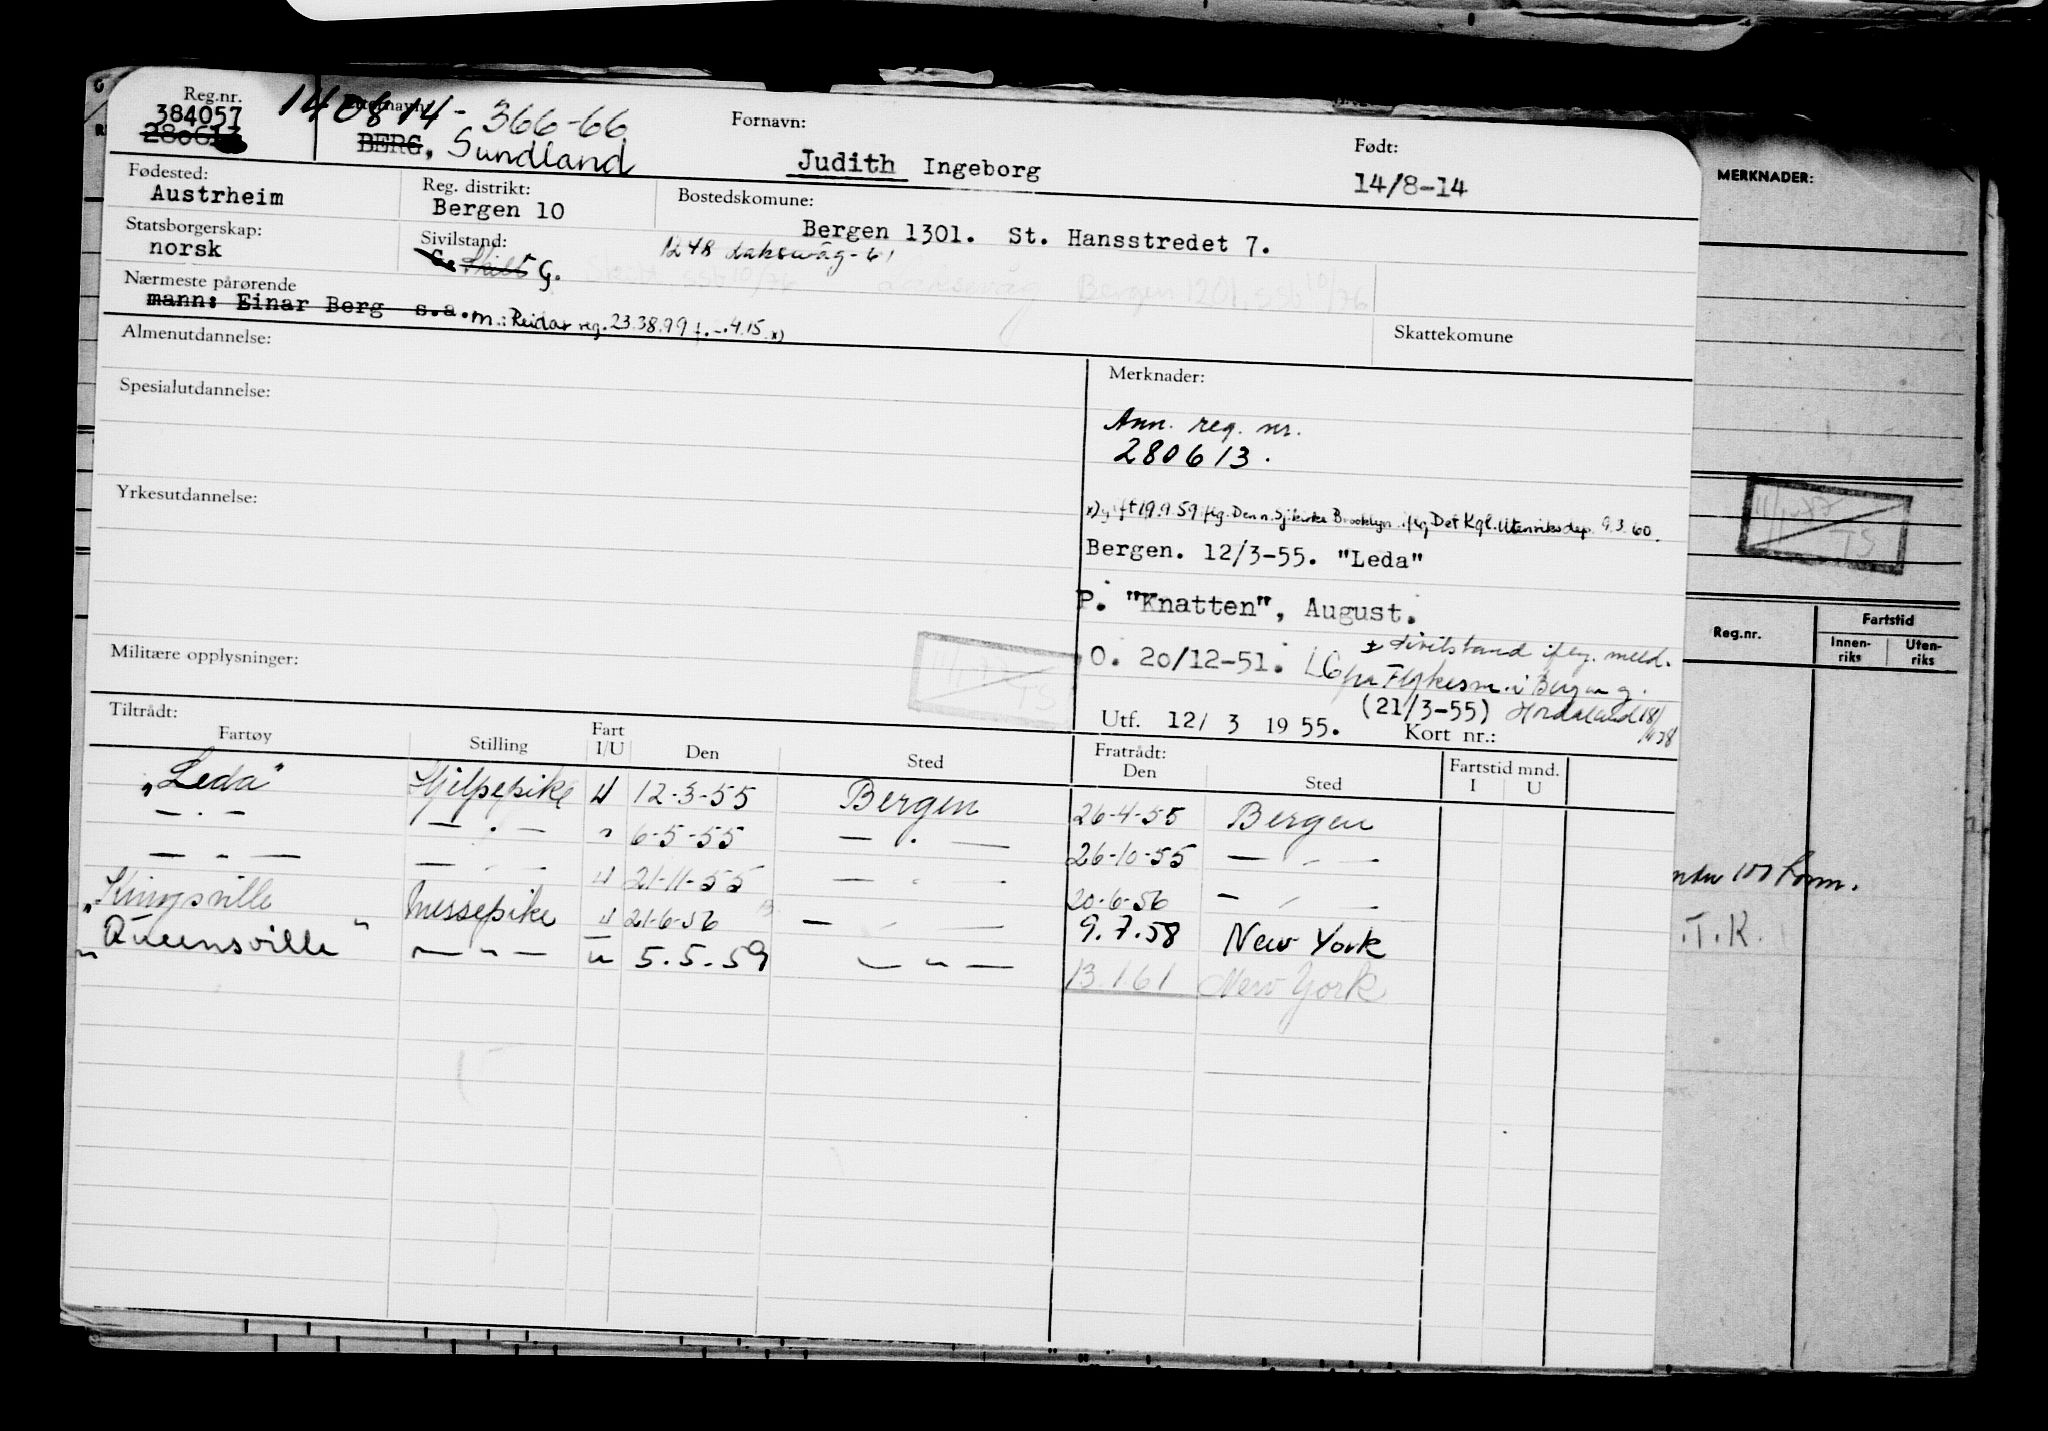 Reg.nr.
384057
280613
140814-366-66
Etternavn:
BERG, Sundland
Fornavn:
Judith Ingeborg
Født:
14/8-14
MERKNADER:
Fødested:
Austrheim
Reg. distrikt:
Bergen 10
Bostedskomune:
Bergen 1301. St. Hansstredet 7.
1248 Laksevåg-61
Statsborgerskap:
norsk
Sivilstand:
G. Skilt G.
Laksevåg Bergen 1201, SSB 10/76
Nærmeste pårørende
mann: Einar Berg s.a. m.: Reidar reg. 23.38.99 f. -.4.15 x)
Skattekomune
Almenutdannelse:
Spesialutdannelse:
Yrkesutdannelse:
Militære opplysninger:
Merknader:
Ann. reg. nr.
280613.
x) gift 19.9.59 flg. Den n. Sjøkirke Brooklyn iflg Det Kgl. Utenriksdep 9.3.60.
Bergen. 12/3-55. "Leda"
P. "Knatten", August.
O. 20/12-51. LG
± Sivilstand iflg. meld.
fra Fylkesm. i Bergen og
(21/3-55) Hordaland 18/
Utf. 12/ 3 1955. Kort nr.:
TS
TS
Reg.nr.
Fartstid
Innen-
riks
Uten-
riks
Tiltrådt:
Fartøy Stilling Fart I/U Den Sted
Fratrådt:
Den Sted
Fartstid mnd.
I U
"Leda" Hjelpepike U 12-3-55 Bergen 26-4-55 Bergen
— " — — " — " 6-5-55 — " — 26-10-55 — " —
— " — — " — U 21-11-55 — " — 20-6-56 — " —
"Kingsville" Messepike U 21-6-56 — " — 9.7.58 New York
"Queensville" — " — U 5.5.59 — " — 13.1.61 New York
.T.K.